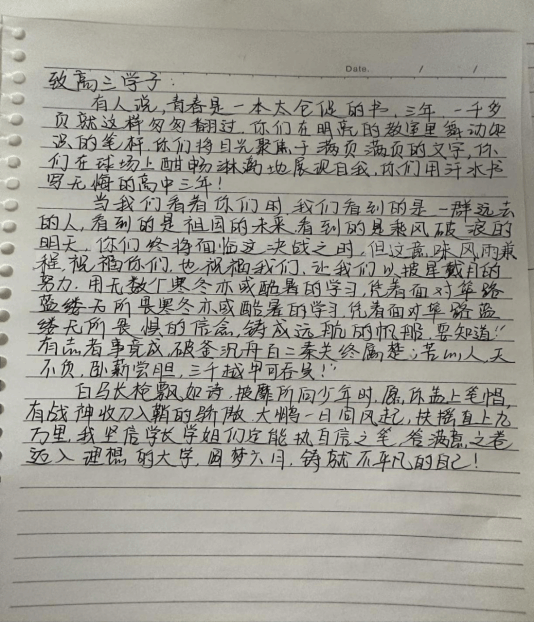 Date. / /
致高三学子：
有人说,青春是一本太仓促的书,三年,一千多
页就这样匆匆翻过.你们在明亮的教室里舞动坚
强的笔杆,你们将目光聚焦于满页满页的文字,你
们在球场上酣畅淋漓地展现自我,你们用汗水书
写无悔的高中三年!
当我们看着你们时,我们看到的是一群远去
的人,看到的是祖国的未来,看到的是乘风破浪的
明天。你们终将面临这决战之时,但这意味风雨兼
程,祝福你们,也祝福我们,让我们以披星戴月的
努力.用无数个寒冬亦或酷暑的学习,凭着面对筚路
蓝缕无所畏寒冬亦或酷暑的学习,凭着面对筚路蓝
缕无所畏惧的信念,铸成远航的帆船.要知道:"
有志者事竟成,破釜沉舟百二秦关终属楚;苦心人,天
不负,卧薪尝胆,三千越甲可吞吴!"
白马长枪飘如诗,披靡所向少年时.愿你盖上笔帽,
有战神收刀入鞘的骄傲,大鹏一日同风起,扶摇直上九
万里,我坚信学长学姐们定能执自信之笔,答满意之卷
迈入理想的大学,圆梦六月,铸就不平凡的自己!